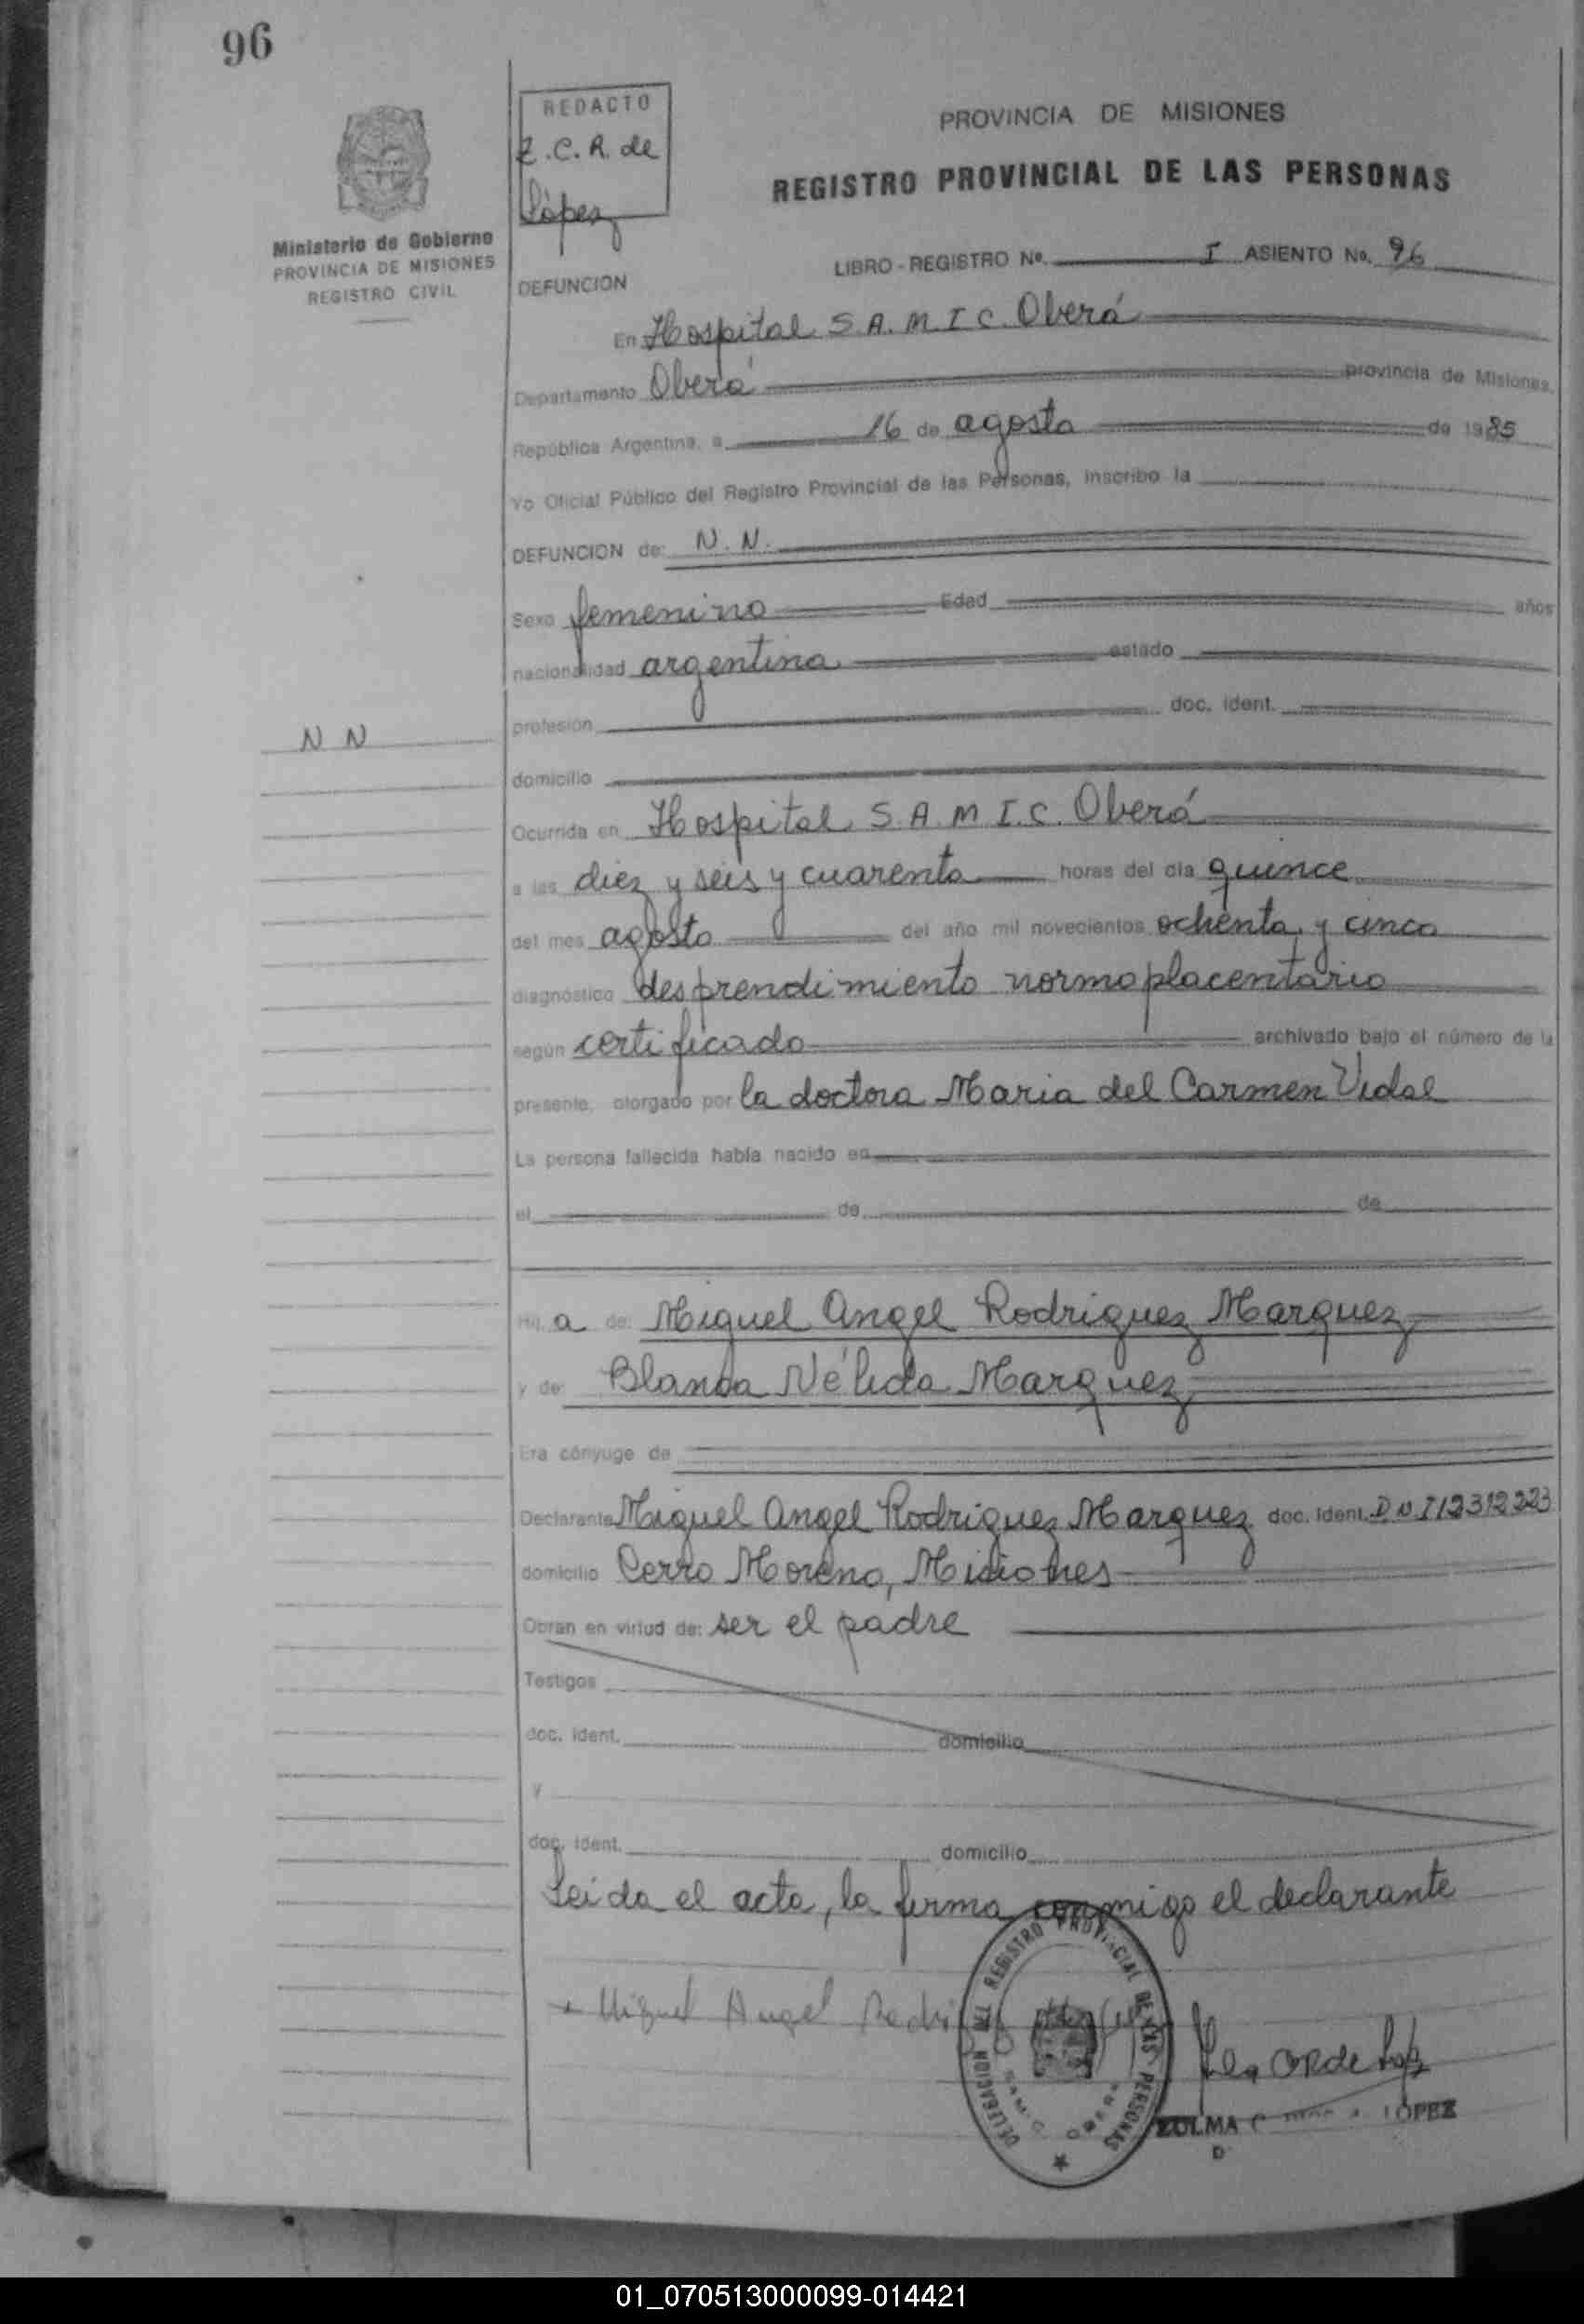 96
REDACTO
Z.C.R. de
López
Ministerio de Gobierno
PROVINCIA DE MISIONES
REGISTRO CIVIL
PROVINCIA DE MISIONES
REGISTRO PROVINCIAL DE LAS PERSONAS
LIBRO - REGISTRO Nº. I ASIENTO No. 96
DEFUNCION
En Hospital S.A.M.I.C. Oberá
Departamento Oberá provincia de Misiones,
República Argentina, a 16 de agosto de 1985
Yo Oficial Público del Registro Provincial de las Personas, inscribo la
DEFUNCION de: N. N.
Sexo femenino Edad años
nacionalidad argentina estado
profesión doc. ident.
N N
domicilio
Ocurrida en Hospital S.A.M.I.C. Oberá
a las diez y seis y cuarenta horas del día quince
del mes agosto del año mil novecientos ochenta y cinco
diagnóstico desprendimiento normoplacentario
según certificado archivado bajo el número de la
presente, otorgado por la doctora Maria del Carmen Vidal
La persona fallecida había nacido en
el de de
Hij a de: Miguel Angel Rodriguez Marquez
y de: Blanca Nélida Marquez
Era cónyuge de
Declarante Miguel Angel Rodriguez Marquez doc. ident. D N I
domicilio Cerro Moreno, Misiones
Obran en virtud de: ser el padre
Testigos
doc. ident. domicilio
y
doc. ident. domicilio
Leida el acta, la firma conmigo el declarante
Miguel Angel
DELEGACION DEL REGISTRO PROVINCIAL DE LAS PERSONAS
OBERA
ZULMA LOPEZ
01_070513000099-014421